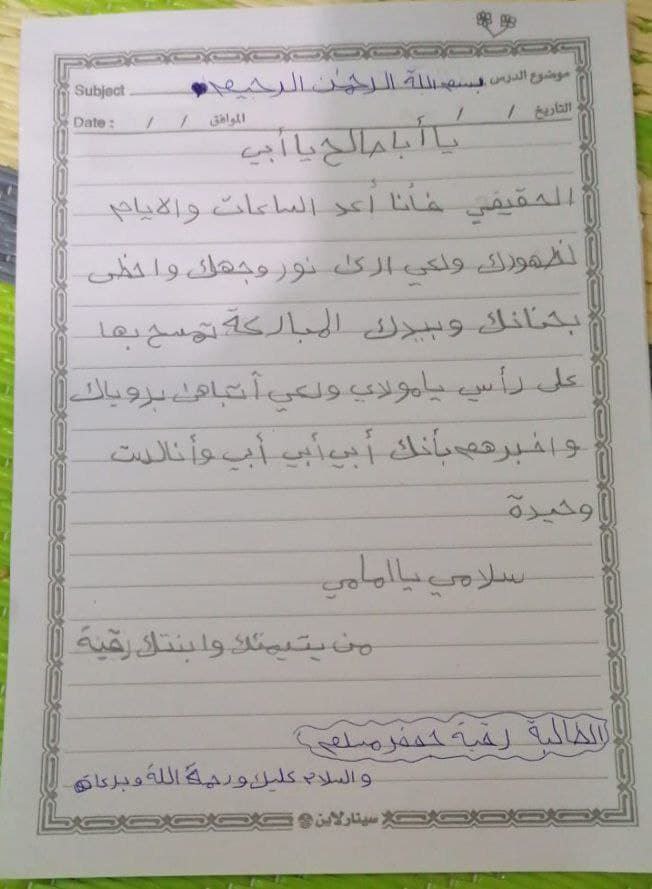 موضوع الدرس بسم الله الرحمن الرحيم Subject
التاريخ / / الموافق / / Date :
يا أبا صالح يا أبي
الحقيقي فأنا أعد الساعات والايام
لظهورك ولكي ارى نور وجهك واحظى
بحنانك وبيدك المباركة تمسح بها
على رأسي يامولاي ولكي أتباهى بروياك
واخبرهم بأنك أبي أبي أبي وأنا لست
وحيدة
سلامي يا امامي
من يتيمتك وابنتك رقية
الطالبة رقية جعفر مسلم
والسلام عليك ورحمة الله وبركاته
سينارلاين